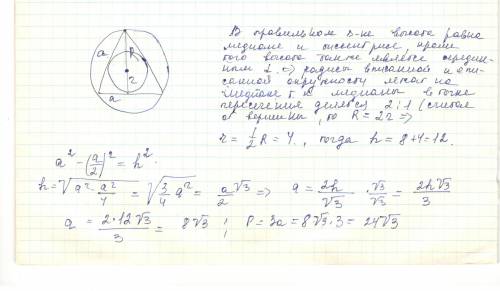 В правильном Δ-ке высота равна
медиане и биссектрисе, кроме
того высота также является середин-
ным ⊥. ⇒ радиусы вписанной и опи-
санной окружности лежат на
медиане т.к. медианы в точке
пересечения делятся 2:1 (считая
от вершины), то R = 2r ⇒
r = 1/2 R = 4, тогда h = 8+4=12.
a R
a r
a² - (a/2)² = h²
h = √(a² - a²/4) = √(3/4 a²) = a√3/2 ⇒ a = 2h/√3 · √3/√3 = 2h√3/3
a = 2·12√3/3 = 8√3 ; P = 3a = 8√3·3 = 24√3